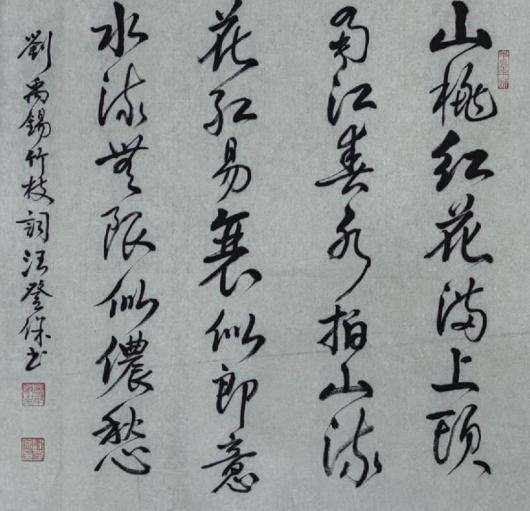 山桃红花满上頭
蜀江春水拍山流
花红易衰似郎意
水流無限似儂愁
劉禹錫竹枝詞汪登保书